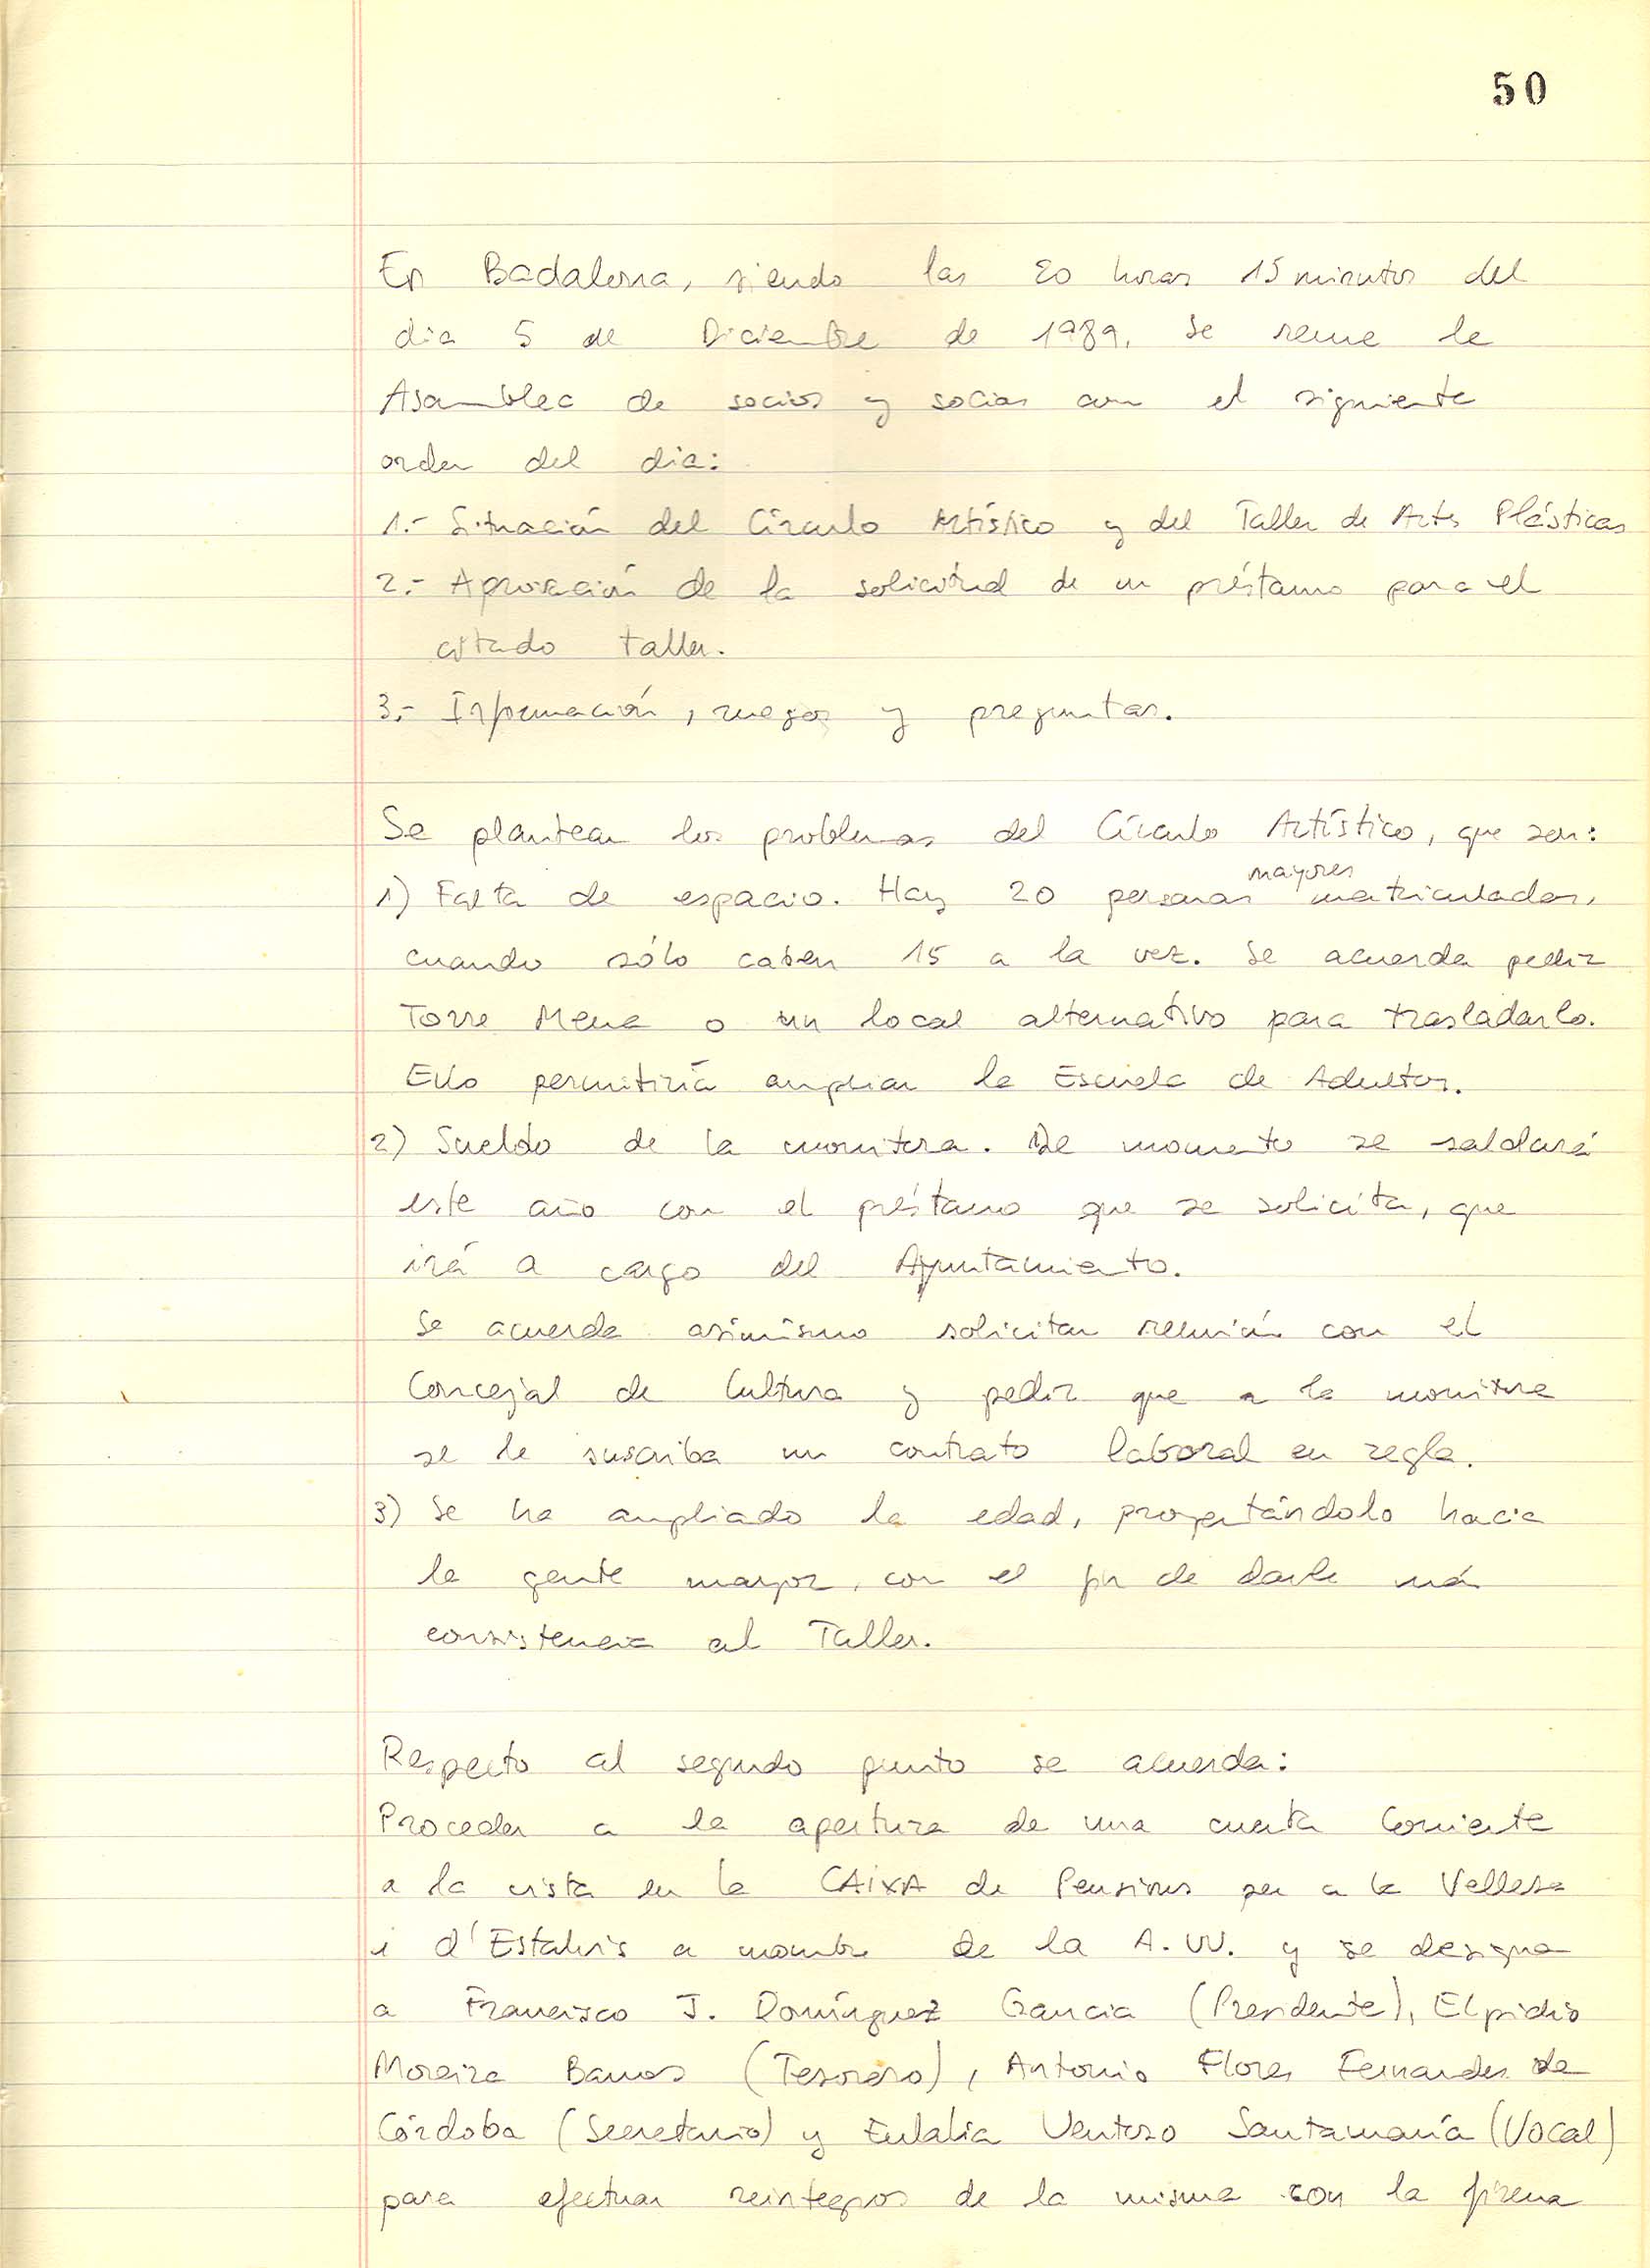 50
En Badalona, siendo las 20 horas 15 minutos del
dia 5 de Diciembre de 1989, se reune la
Asamblea de socios y socias con el siguiente
orden del dia:
1.- Situación del Círculo Artístico y del Taller de Arts Plásticas
2.- Aprovación de la solicitud de un préstamo para el
citado taller.
3.- Información, ruegos y preguntas.
Se plantean los problemas del Círculo Artístico, que son:
mayores
1) Falta de espacio. Hay 20 personas matriculados,
cuando sólo caben 15 a la vez. Se acuerda pedir
Torre Mena o un local alternativo para trasladarlo.
Ello permitiría ampliar la Escuela de Adultos.
2) Sueldo de la monitora. De momento se saldará
este año con el préstamo que se solicita, que
irá a cargo del Ayuntamiento.
Se acuerda asimismo solicitar reunión con el
Concejal de Cultura y pedir que a la monitora
se le suscriba un contrato laboral en regla.
3) Se ha ampliado la edad, proyectándolo hacia
la gente mayor, con el fin de darle más
consistencia al Taller.
Respecto al segundo punto se acuerda:
Proceder a la apertura de una cuenta Corriente
a la vista en la CAIXA de Pensions per a la Vellesa
i d'Estalvis a nombre de la A.VV. y se designa
a Francisco J. Domínguez Garcia (Presidente), Elpidio
Moreira Barros (Tesorero), Antonio Flores Fernandez de
Córdoba (Secretario) y Eulalia Ventoso Santamaría (Vocal)
para efectuar reintegros de la misma con la firma